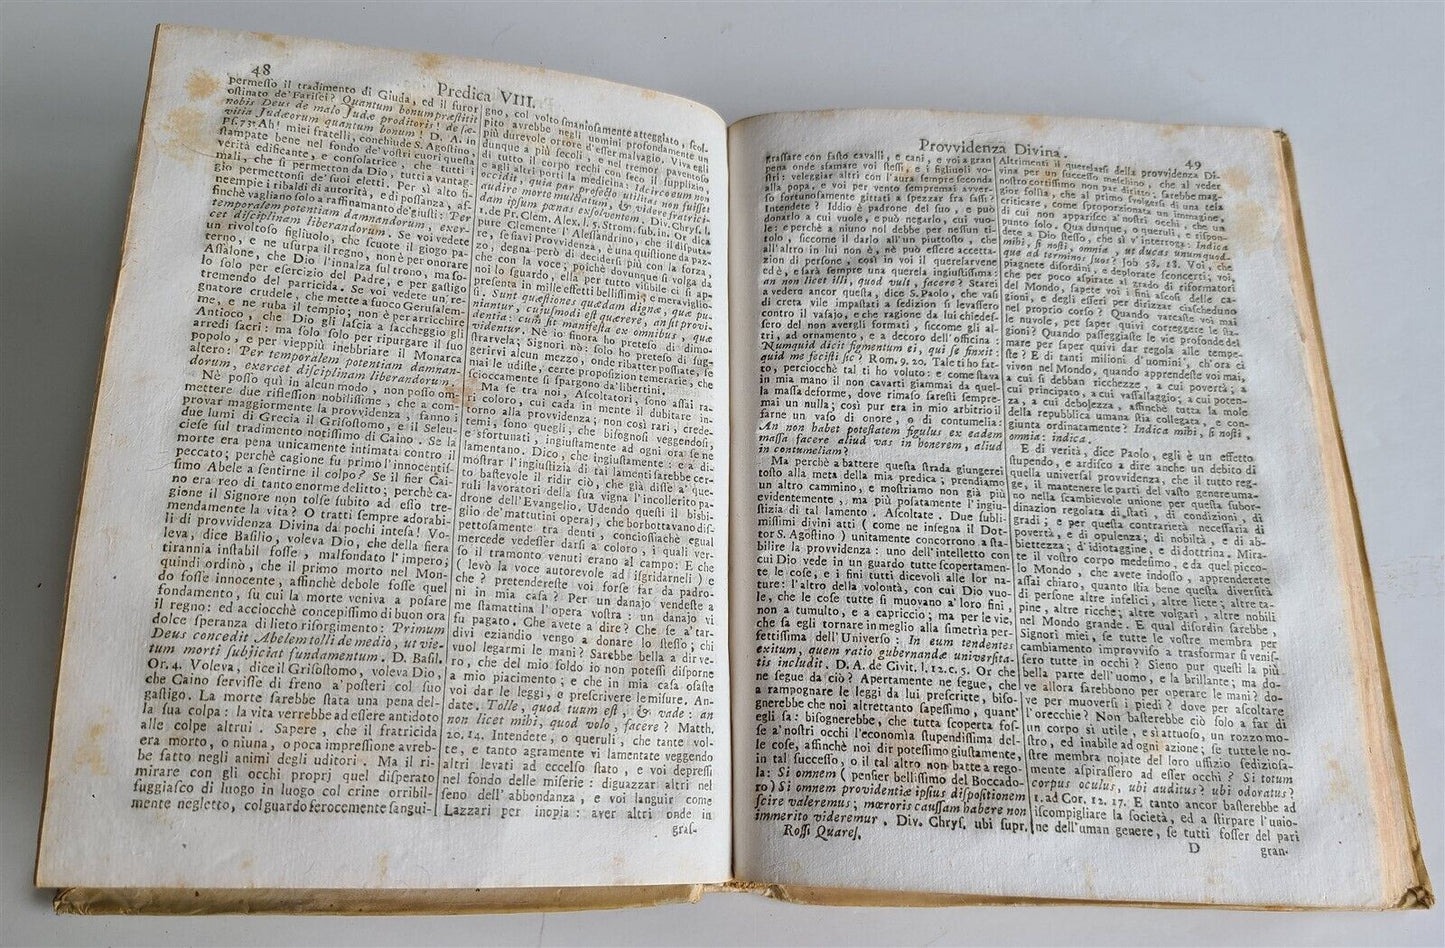 48
Predica VIII.
permesso il tradimento di Giuda, ed il furor
ostinato de' Farisei? Quantum bonum præstitit
nobis Deus de malo Judæ proditoris! de sæ-
vitia Judæorum quantum bonum! D. A. in
Ps. 73. Ah! miei fratelli, conchiude S. Agostino,
stampate bene nel fondo de' vostri cuori questa
verità edificante, e consolatrice, che tutti i
mali, che si permetton da Dio, tutti a vantag-
gio permettonsi de' suoi eletti. Per sì alto fi-
ne empie i ribaldi di autorità, e di possanza, af-
finchè vagliano solo a raffinamento de' giusti: Per
temporalem potentiam damnandorum, exer-
cet disciplinam liberandorum. Se voi vedete
un rivoltoso figliuolo, che scuote il giogo pa-
terno, e ne usurpa il regno, non è per onorare
Assalone, che Dio l'innalza sul trono, ma so-
lo solo per esercizio del Padre, e per gastigo
tremendo del parricida. Se voi vedete un re-
gnatore crudele, che mette a fuoco Gerusalem-
me, e ne ruba il tempio; non è per arricchire
Antioco, che Dio gli lascia a saccheggio gli
arredi sacri: ma solo solo per ripurgare il suo
popolo, e per vieppiù inebbriare il Monarca
altero: Per temporalem potentiam damnan-
dorum, exercet disciplinam liberandorum.
Nè posso quì in alcun modo, non posso om-
mettere due riflessioni nobilissime, che a com-
provar maggiormente la provvidenza; fanno i
due lumi di Grecia il Grisostomo, e il Seleu-
ciese sul tradimento notissimo di Caino. Se la
morte era pena unicamente intimata contro il
peccato; perchè cagione fu primo l'innocentis-
simo Abele a sentirne il colpo? Se il fier Cai-
no era reo di tanto enorme delitto; perchè ca-
gione il Signore non tolse subito ad esso tre-
mendamente la vita? O tratti sempre adorabi-
li di provvidenza Divina da pochi intesa! Vo-
leva, dice Basilio, voleva Dio, che della fiera
tirannia instabil fosse, malfondato l'impero;
quindi ordinò, che il primo morto nel Mon-
do fosse innocente, affinchè debole fosse quel
fondamento, su cui la morte veniva a posare
il regno: ed acciocchè concepissimo di buon ora
dolce speranza di lieto risorgimento: Primum
Deus concedit Abelem tolli de medio, ut vie-
tum morti subjiciat fundamentum. D. Basil.
Or. 4. Voleva, dice il Grisostomo, voleva Dio,
che Caino servisse di freno a' posteri col suo
gastigo. La morte sarebbe stata una pena del-
la sua colpa: la vita verrebbe ad essere antidoto
alle colpe altrui. Sapere, che il fratricida
era morto, o niuna, o poca impressione avreb-
be fatto negli animi degli uditori. Ma il ri-
mirare con gli occhi proprj quel disperato
fuggiasco di luogo in luogo col crine orribil-
mente negletto, col guardo ferocemente sangui-
gno, col volto smaniosamente atteggiato, scol-
pito avrebbe negli uomini profondamente un
più durevole orrore d'esser malvagio. Viva egli
dunque a più secoli, e nel tremor paventoso
di tutto il corpo rechi con seco il supplizio,
e agli altri porti la medicina: Idcirco eum non
occidit, quia par præsefto utilitas non fuisset
audire mortem multatum, & videre fratrici-
dam ipsum pœnas exsolventem. Div. Chrys. l.
1. de Pr. Clem. Alex. l. 5. Strom. sub. in. Or dica
pure Clemente l'Alessandrino, che il disputa-
re, se siavi Provvidenza, è una quistione da paz-
zo, degna però di decidersi più con la forza,
che con la voce; poichè dovunque si volga da
noi lo sguardo, ella per tutto visibile ci si ap-
presenta in mille effetti bellissimi, e meraviglio-
si. Sunt quæstiones quædam dignæ, quæ pu-
niantur, cujusmodi est quærere, an sit provi-
dentia: cum sit manifesta ex omnibus, quæ
videntur. Nè io finora ho preteso di dimo-
strarvela; Signori nò: solo ho preteso di sug-
gerirvi alcun mezzo, onde ribatter possiate, se
mai le udiste, certe proposizion temerarie, che
scioccamente si spargono da' libertini.
Ma se tra noi, Ascoltatori, sono assai ra-
ri coloro, cui cada in mente il dubitare in-
torno alla provvidenza; non così rari, crede-
temi, sono quegli, che bisognosi veggendosi,
e sfortunati, ingiustamente ad ogni ora se ne
lamentano. Dico, che ingiustamente: e a di-
mostrar l'ingiustizia di tai lamenti sarebbe cer-
to bastevole il ridir ciò, che già disse a' que-
ruli lavoratori della sua vigna l'incollerito pa-
drone dell' Evangelio. Udendo questi il bisbi-
glio de' mattutini operaj, che borbottavano dis-
pettosamente tra denti, conciossiachè egual
mercede vedesser darsi a coloro, i quali ver-
so il tramonto venuti erano al campo: E che
(levò la voce autorevole ad isgridarneli) e
che? pretendereste voi forse far da padro-
ne in mia casa? Per un danajo vendeste a
me stamattina l'opera vostra: un danajo vi
fu pagato. Che avete a dire? Che se a' tar-
divi eziandio vengo a donare lo stesso; chi
vuol legarmi le mani? Sarebbe bella a dir ve-
ro, che del mio soldo io non potessi disporne
a mio piacimento; e che in mia casa osaste
voi dar le leggi, e prescrivere le misure. An-
date. Tolle, quod tuum est, & vade: an
non licet mihi, quod volo, facere? Matth.
20. 14. Intendete, o queruli, che tante vol-
te, e tanto agramente vi lamentate veggendo
altri levati ad eccelso stato, e voi depressi
nel fondo delle miserie: diguazzar altri nel
seno dell' abbondanza, e voi languir come
Lazzari per inopia: aver altri onde in
gras-
Provvidenza Divina.
49
grassare con fasto cavalli, e cani, e voi a gran
pena onde sfamare voi stessi, e i figliuoli vo-
stri: veleggiar altri con l'aura sempre seconda
alla popa, e voi per vento sempremai avver-
so fortunosamente gittati a spezzar fra sassi?
Intendete? Iddio è padrone del suo, e può
donarlo a cui vuole, e può negarlo, cui vuo-
le: e perchè a niuno nol debbe per nessun ti-
tolo, siccome il darlo all'un piuttosto, che
all'altro in lui non è, nè può essere accetta-
zion di persone, così in voi il querelarvene
ed è, e sarà sempre una querela ingiustissima:
an non licet illi, quod vult, facere? Starei
a vedere ancor questa, dice S. Paolo, che vasi
di creta vile impastati a sedizion si levassero
contro il vasajo, e che ragione da lui chiedes-
sero del non avergli formati, siccome gli al-
tri, ad ornamento, e a decoro dell'officina:
Numquid dicit figmentum ei, qui se finxit:
quid me fecisti sic? Rom. 9. 20. Tale ti ho fat-
to, perciocchè tal ti ho voluto: e come stava
in mia mano il non cavarti giammai da quel-
la massa deforme, dove rimaso saresti sempre-
mai un nulla; così pur era in mio arbitrio il
farne un vaso di onore, o di contumelia:
An non habet potestatem figulus ex eadem
massa facere aliud vas in honorem, aliud
in contumeliam?
Ma perchè a battere questa strada giungerei
tosto alla meta della mia predica; prendiamo
un altro cammino, e mostriamo non già più
evidentemente, ma più posatamente l'ingiu-
stizia di tal lamento. Ascoltate. Due subli-
missimi divini atti (come ne insegna il Dot-
tor S. Agostino) unitamente concorrono a sta-
bilire la provvidenza: uno dell'intelletto con
cui Dio vede in un guardo tutte scopertamen-
te le cose, e i fini tutti dicevoli alle lor na-
ture: l'altro della volontà, con cui Dio vuo-
le, che le cose tutte si muovano a' loro fini,
non a tumulto, e a capriccio; ma per le vie,
che fa egli tornare in meglio alla simetria per-
fettissima dell' Universo: In eum tendentes
exitum, quem ratio gubernandæ universita-
tis includit. D. A. de Civit. l. 12. c. 5. Or che
ne segue da ciò? Apertamente ne segue, che
a rampognare le leggi da lui prescritte, biso-
gnerebbe che noi altrettanto sapessimo, quant'
egli sa: bisognerebbe, che tutta scoperta fos-
se a' nostri occhi l'economia stupendissima del-
le cose, affinchè noi dir potessimo giustamente,
in tal successo, o il tal altro non batte a rego-
la: Si omnem (pensier bellissimo del Boccado-
ro) Si omnem providentiæ ipsius dispositionem
scire valeremus; mœroris caussam habere non
immerito videremur. Div. Chrys. ubi supr.
Rossi Quares.
Altrimenti il querelarsi della provvidenza Di-
vina per un successo meschino, che al veder
nostro cortissimo non par diritto; sarebbe mag-
gior follia, che al primo svolgersi di una tela
criticare, come sproporzionata un immagine,
di cui non apparisce a' nostri occhi, che un
punto solo. Qua dunque, o queruli, e rispon-
dete a Dio stesso, che sì v'interroga: Indica
mihi, si nosti, omnia, ut ducas unumquod-
que ad terminos suos? Job 38. 18. Voi, che
piagnete disordini, e deplorate sconcerti; voi,
che per poco aspirate al grado di riformatori
del Mondo, sapete voi i fini ascosi delle ca-
gioni, e degli esseri per dirizzar ciascheduno
nel proprio corso? Quando varcaste voi mai
le nuvole, per saper quivi correggere le sta-
gioni? Quando passeggiaste le vie profonde del
mare per saper quivi dar regola alle tempe-
ste? E di tanti milioni d'uomini, ch'ora ci
vivon nel Mondo, quando apprendeste voi mai,
a cui si debban ricchezze, a cui povertà; a
cui principato, a cui vassallaggio; a cui poten-
za, a cui debolezza, affinchè tutta la mole
della repubblica umana stia collegata, e con-
giunta ordinatamente? Indica mihi, si nosti,
omnia: indica.
E di verità, dice Paolo, egli è un effetto
stupendo, e ardisco a dire anche un debito di
quella universal provvidenza, che il tutto reg-
ge, il mantenere le parti del vasto genere uma-
no nella scambievole unione per questa subor-
dinazion regolata di stati, di condizioni, di
gradi; e per questa contrarietà necessaria di
povertà, e di opulenza; di nobiltà, e di ab-
biettezza; d'idiotaggine, e di dottrina. Mira-
te il vostro corpo medesimo, e da quel picco-
lo Mondo, che avete indosso, apprenderete
assai chiaro, quanto stia bene questa diversità
di persone altre infelici, altre liete; altre ta-
pine, altre ricche; altre volgari, altre nobili
nel Mondo grande. E qual disordin sarebbe,
Signori miei, se tutte le vostre membra per
cambiamento improvviso a trasformar si venis-
sero tutte in occhi? Sieno pur questi la più
bella parte dell'uomo, e la brillante; ma do-
ve allora sarebbono per operare le mani? do-
ve per muoversi i piedi? dove per ascoltare
l'orecchie? Non basterebbe ciò solo a far di
un corpo sì utile, e sì attuoso, un rozzo mo-
stro, ed inabile ad ogni azione; se tutte le no-
stre membra nojate del loro uffizio sediziosa-
mente aspirassero ad esser occhi? Si totum
corpus oculus, ubi auditus? ubi odoratus?
1. ad Cor. 12. 17. E tanto ancor basterebbe ad
iscompigliare la società, ed a stirpare l'unio-
ne dell'uman genere, se tutti fosser del pari
D
gran-